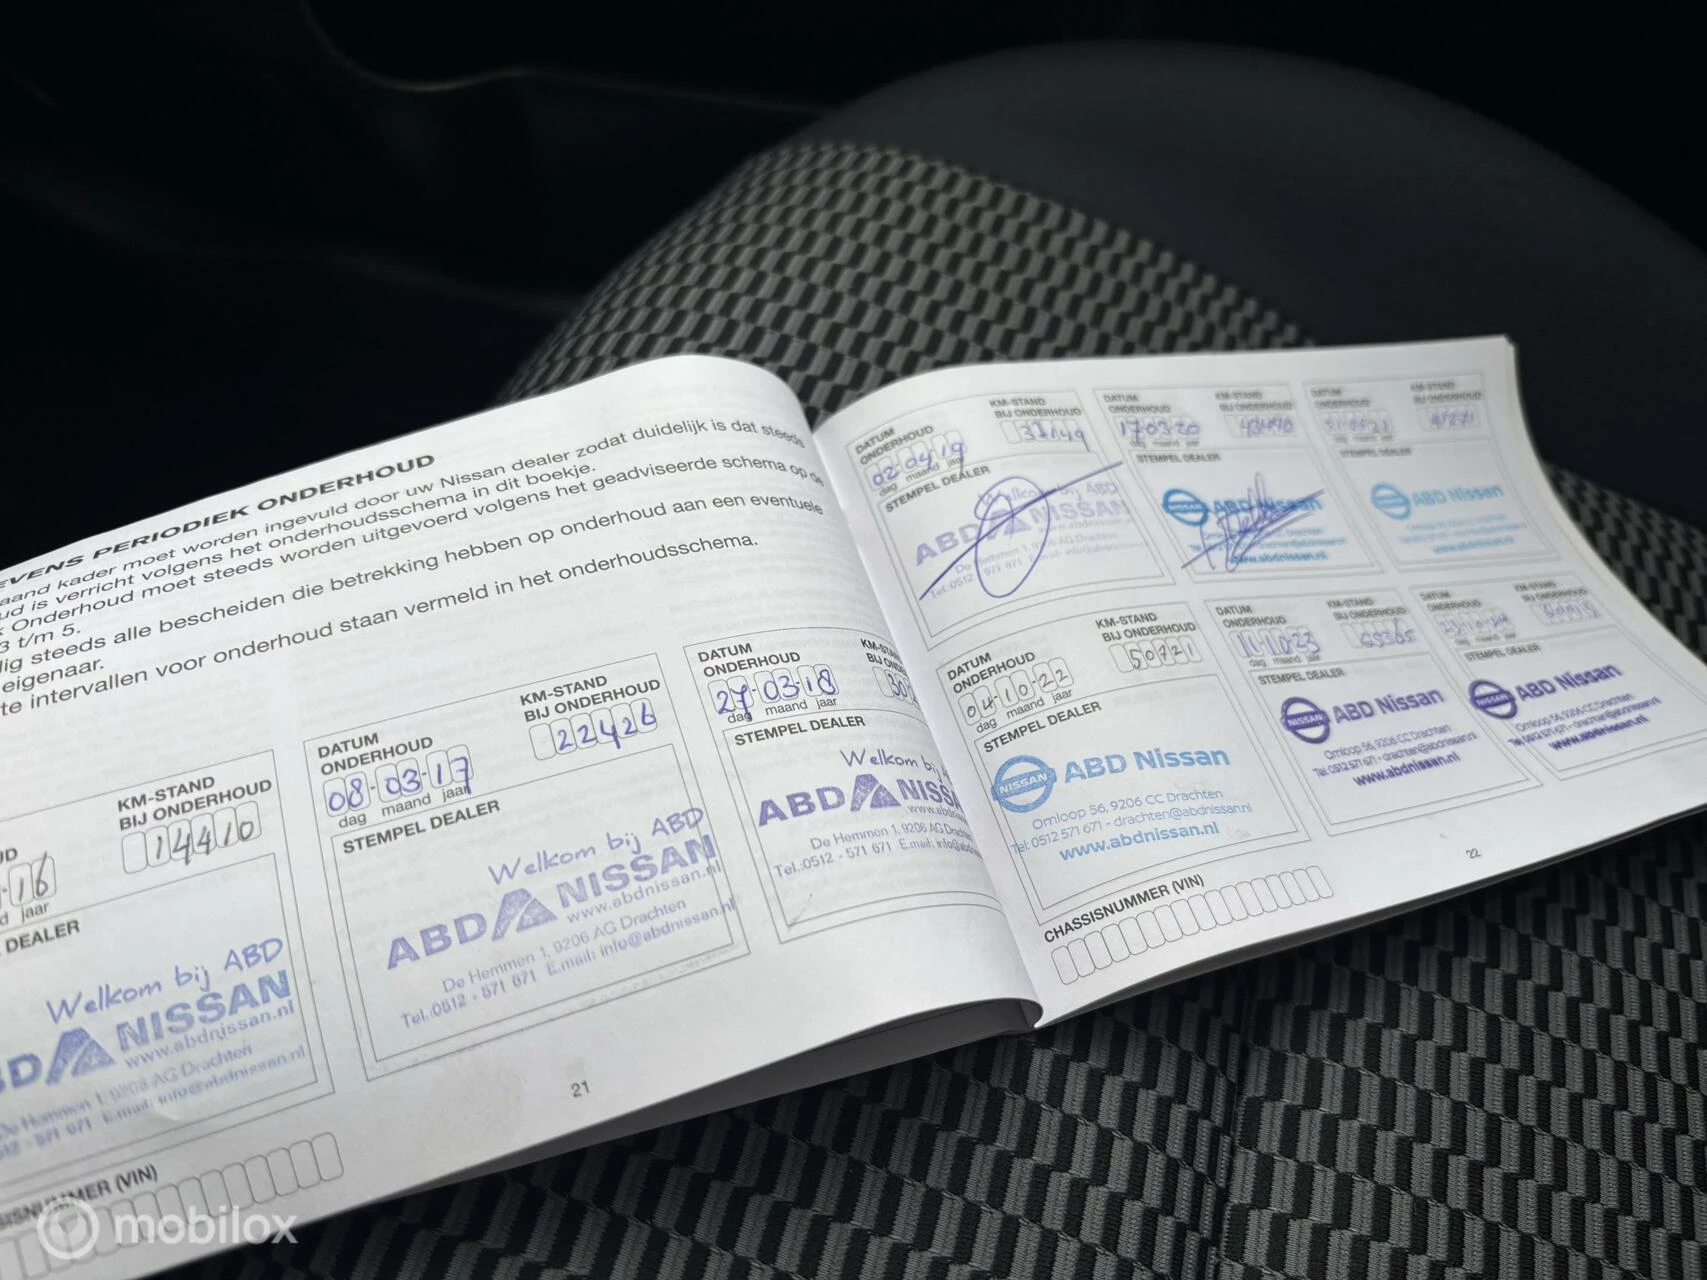 EVENS PERIODIEK ONDERHOUD
aand kader moet worden ingevuld door uw Nissan dealer zodat duidelijk is dat steeds
ud is verricht volgens het onderhoudsschema in dit boekje.
Onderhoud moet steeds worden uitgevoerd volgens het geadviseerde schema op de
3 t/m 5.
dig steeds alle bescheiden die betrekking hebben op onderhoud aan een eventuele
eigenaar.
te intervallen voor onderhoud staan vermeld in het onderhoudsschema.
KM-STAND
BIJ ONDERHOUD
14410
16
jaar
DEALER
Welkom bij ABD
NISSAN
www.abdnissan.nl
AG Drachten
DATUM
ONDERHOUD
08-03-17
dag maand jaar
KM-STAND
BIJ ONDERHOUD
22426
STEMPEL DEALER
Welkom bij ABD
ABD NISSAN
www.abdnissan.nl
De Hemmen 1, 9206 AG Drachten
Tel.:0512 - 571 671 E.mail: info@abdnissan.nl
DATUM
ONDERHOUD
27-03-18
dag maand jaar
KM-STA
BIJ ONDE
30
STEMPEL DEALER
Welkom bij
ABD NISSA
www.abdn
De Hemmen 1, 9206 AG Drachten
Tel.:0512 - 571 671 E.mail: info@abdn
21
(VIN)
DATUM
ONDERHOUD
02-04-19
dag maand jaar
KM-STAND
BIJ ONDERHOUD
37149
STEMPEL DEALER
Welkom bij ABD
ABD NISSAN
www.abdnissan.nl
De Hemmen 1, 9206 AG Drachten
Tel.:0512 - 571 671 E.mail: info@abdnissan
DATUM
ONDERHOUD
17-03-20
dag maand jaar
KM-STAND
BIJ ONDERHOUD
STEMPEL DEALER
NISSAN
ABD Nissan
www.abdnissan.nl
DATUM
ONDERHOUD
dag maand jaar
KM-STAND
BIJ ONDERHOUD
STEMPEL DEALER
ABD Nissan
DATUM
ONDERHOUD
04-10-22
dag maand jaar
KM-STAND
BIJ ONDERHOUD
50721
STEMPEL DEALER
NISSAN
ABD Nissan
Omloop 56, 9206 CC Drachten
Tel: 0512 571 671 - drachten@abdnissan.nl
www.abdnissan.nl
DATUM
ONDERHOUD
11-10-23
dag maand jaar
KM-STAND
BIJ ONDERHOUD
STEMPEL DEALER
NISSAN
ABD Nissan
Omloop 56, 9206 CC Drachten
Tel: 0512 571 671 - drachten@abdnissan.nl
www.abdnissan.nl
DATUM
ONDERHOUD
dag maand jaar
KM-STAND
BIJ ONDERHOUD
STEMPEL DEALER
NISSAN
ABD Nissan
Omloop 56, 9206 CC Drachten
Tel: 0512 571 671 - drachten@abdnissan.nl
www.abdnissan.nl
CHASSISNUMMER (VIN)
22
mobilox